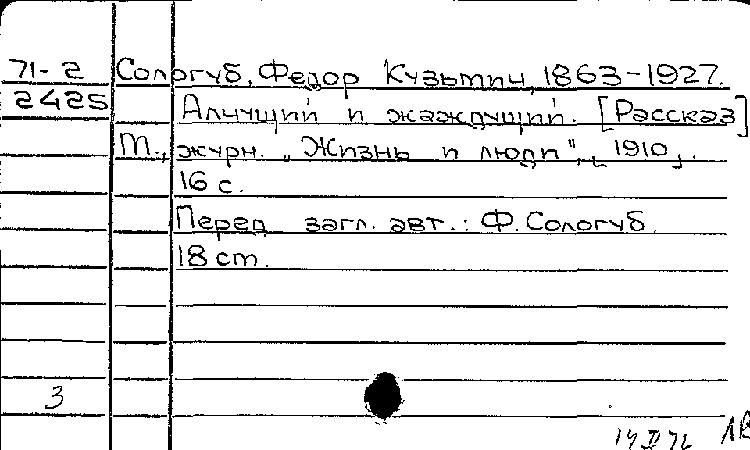 71-2 Сологуб, Федор Кузьмич, 1863-1927.
2425 Алчущий и жаждущий. [Рассказ]
М., журн. „Жизнь и люди", [1910].
16 с.
Перед загл. авт.: Ф. Сологуб.
18 см.
3
14 II 72 ЛВ